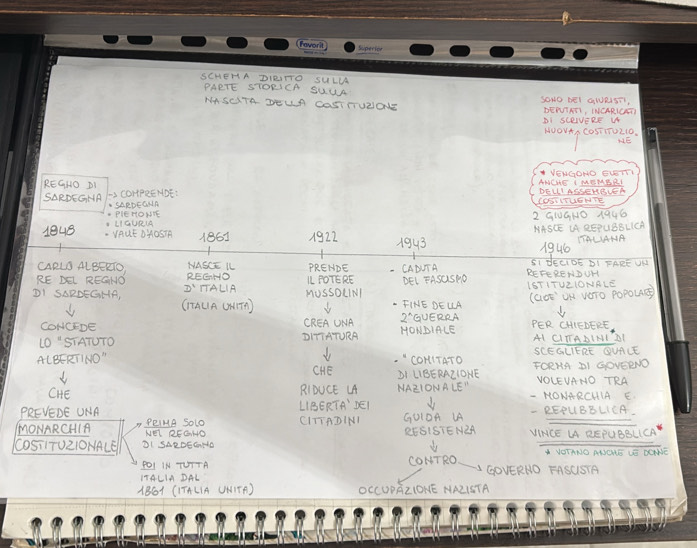 Favorit
Superior
SCHEMA DIRITTO SULLA
PARTE STORICA SULLA
NASCITA DELLA COSTITUZIONE
SONO DEI GIURISTI,
DEPUTATI, INCARICATI
DI SCRIVERE LA
NUOVA COSTITUZIO-
NE
* VENGONO ELETTI
ANCHE I MEMBRI
DELL'ASSEMBLEA
COSTITUENTE
REGNO DI
SARDEGNA
→ COMPRENDE:
• SARDEGNA
• PIEMONTE
• LIGURIA
• VALLE D'AOSTA
1848
CARLO ALBERTO,
RE DEL REGNO
DI SARDEGNA,
↓
CONCEDE
LO "STATUTO
ALBERTINO"
↓
CHE
PREVEDE UNA
MONARCHIA
COSTITUZIONALE
→ PRIMA SOLO
NEL REGNO
DI SARDEGNA
→ POI IN TUTTA
ITALIA DAL
1861 (ITALIA UNITA)
1861
NASCE IL
REGNO
D'ITALIA
(ITALIA UNITA)
1922
PRENDE
IL POTERE
MUSSOLINI
↓
CREA UNA
DITTATURA
↓
CHE
RIDUCE LA
LIBERTA' DEI
CITTADINI
1943
- CADUTA
DEL FASCISMO
- FINE DELLA
2ª GUERRA
MONDIALE
- "COMITATO
DI LIBERAZIONE
NAZIONALE"
↓
GUIDA LA
RESISTENZA
↓
CONTRO
→ GOVERNO FASCISTA
OCCUPAZIONE NAZISTA
2 GIUGNO 1946
NASCE LA REPUBBLICA
ITALIANA
1946
SI DECIDE DI FARE UN
REFERENDUM
ISTITUZIONALE
(CIOE' UN VOTO POPOLARE)
↓
PER CHIEDERE
AI CITTADINI* DI
SCEGLIERE QUALE
FORMA DI GOVERNO
VOLEVANO TRA
- MONARCHIA E
- REPUBBLICA
VINCE LA REPUBBLICA*
* VOTANO ANCHE LE DONNE